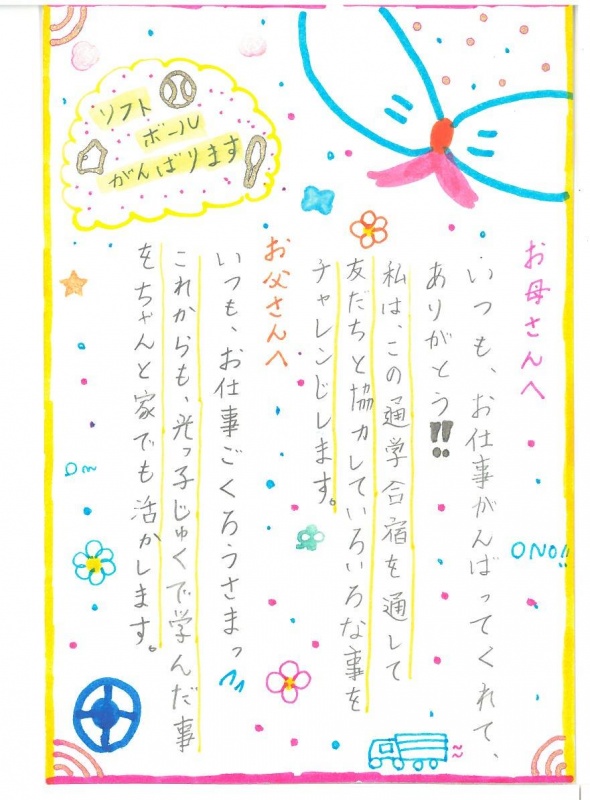 ソフト
ボール
がんばります
お母さんへ
いつも、お仕事がんばってくれて、
ありがとう!!
私は、この通学合宿を通して
友だちと協力していろいろな事を
チャレンじします。
お父さんへ
いつも、お仕事ごくろうさまっ
これからも、光っ子じゅくで学んだ事
をちゃんと家でも活かします。
ONO!!